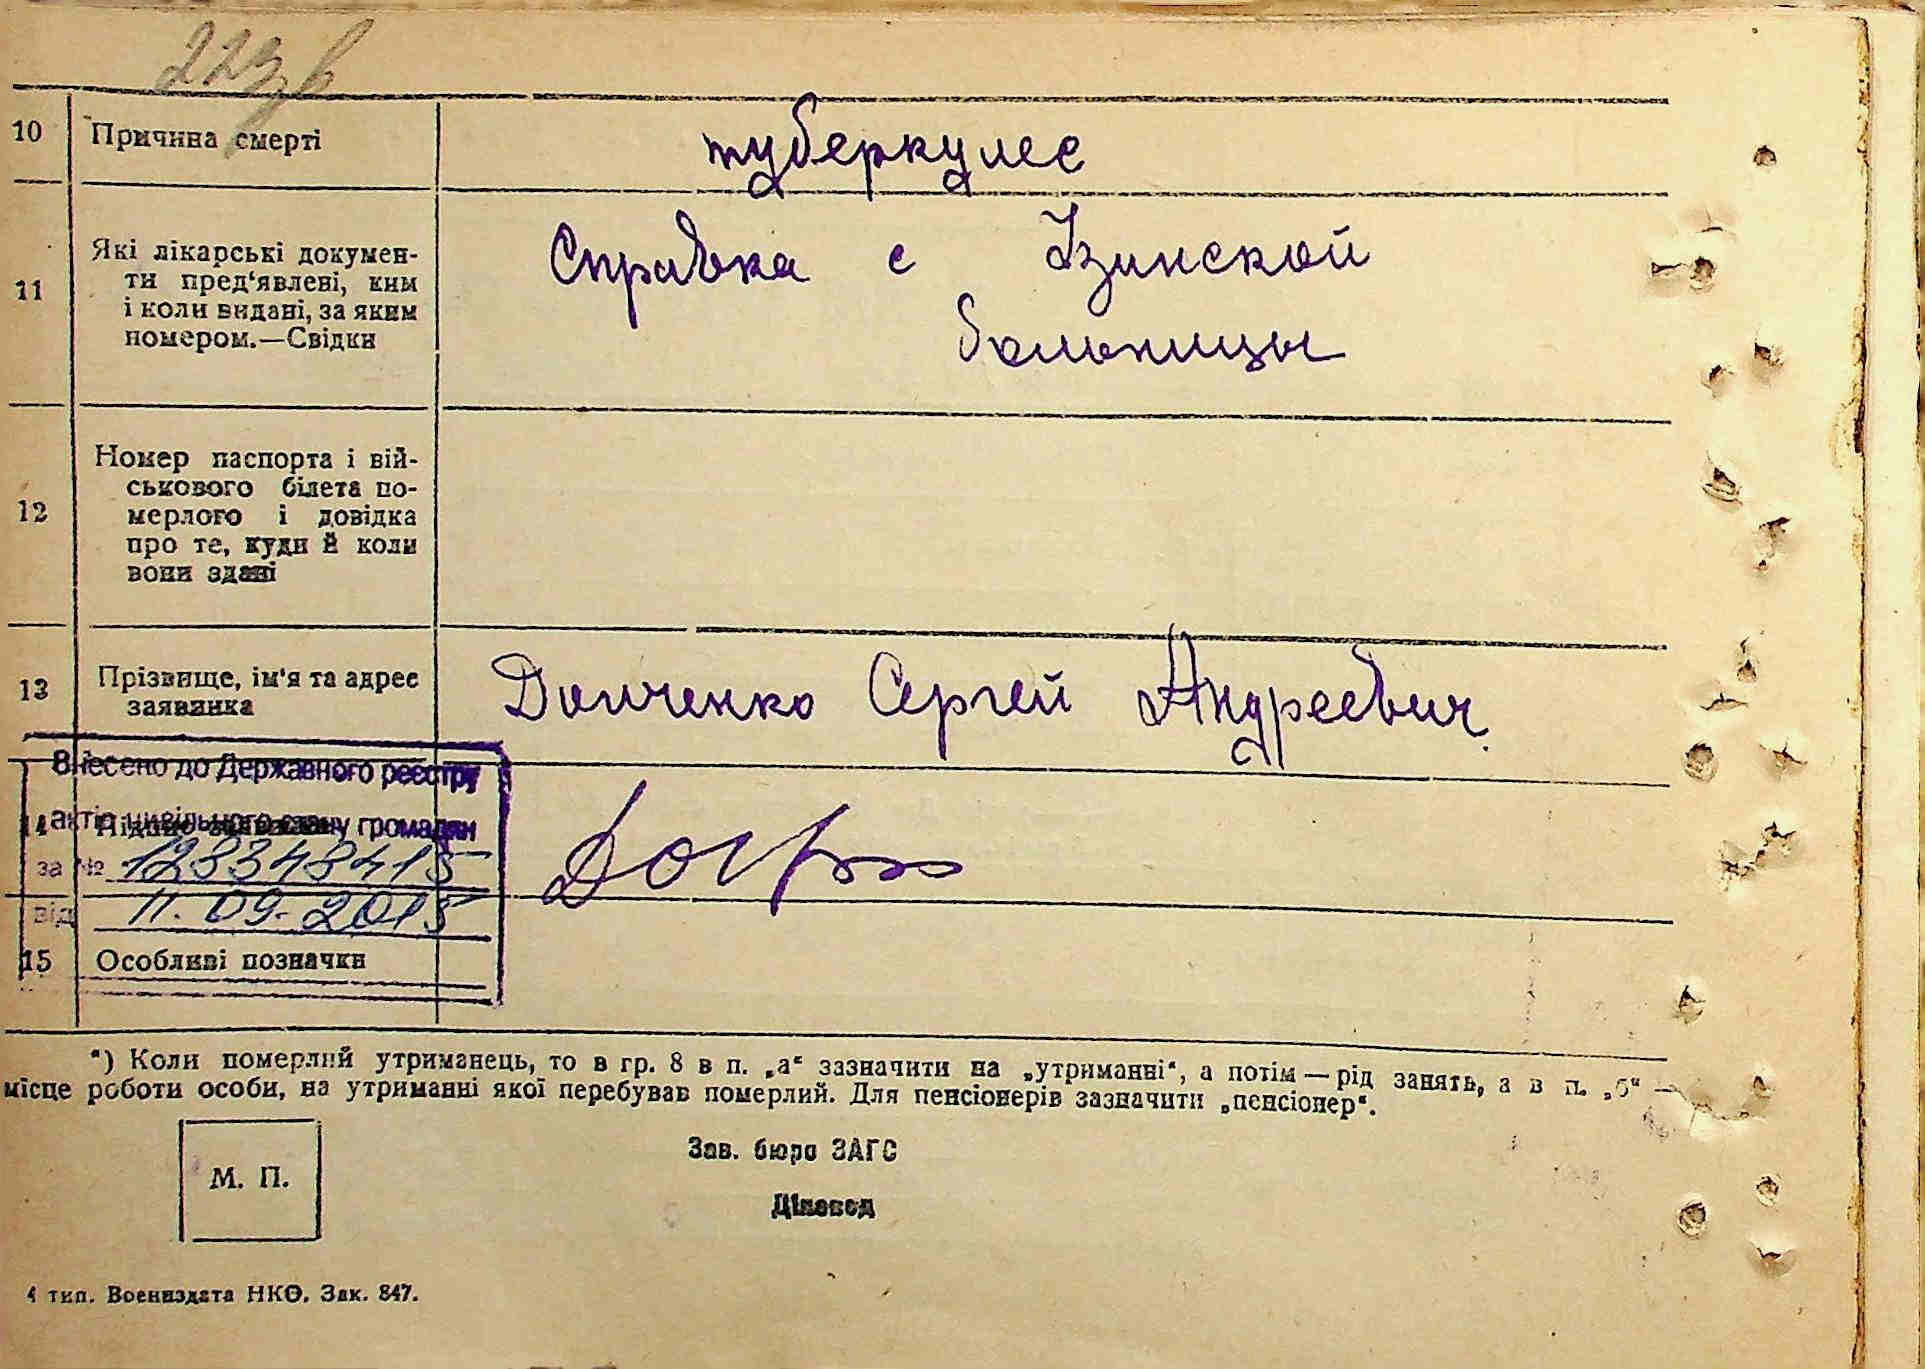 223в
10 Причина смерті туберкулес
11 Які лікарські докумен-
ти пред'явлені, ким
і коли видані, за яким
номером.—Свідки
Справка с Узинской
больницы
12 Номер паспорта і вій-
ськового білета по-
мерлого і довідка
про те, куди й коли
вони здані
13 Прізвище, ім'я та адрес
заявника
Донченко Сергей Андреевич.
Внесено до Державного реєстру
актів цивільного стану громадян
за № 128348415
від 11.09.2015
15 Особливі позначки
*) Коли померлий утриманець, то в гр. 8 в п. „а“ зазначити на „утриманні“, а потім — рід занять, а в п. „б“ —
місце роботи особи, на утриманні якої перебував померлий. Для пенсіонерів зазначити „пенсіонер“.
М. П.
Зав. бюро ЗАГС
Діловод
4 тип. Воениздата НКО. Зак. 847.